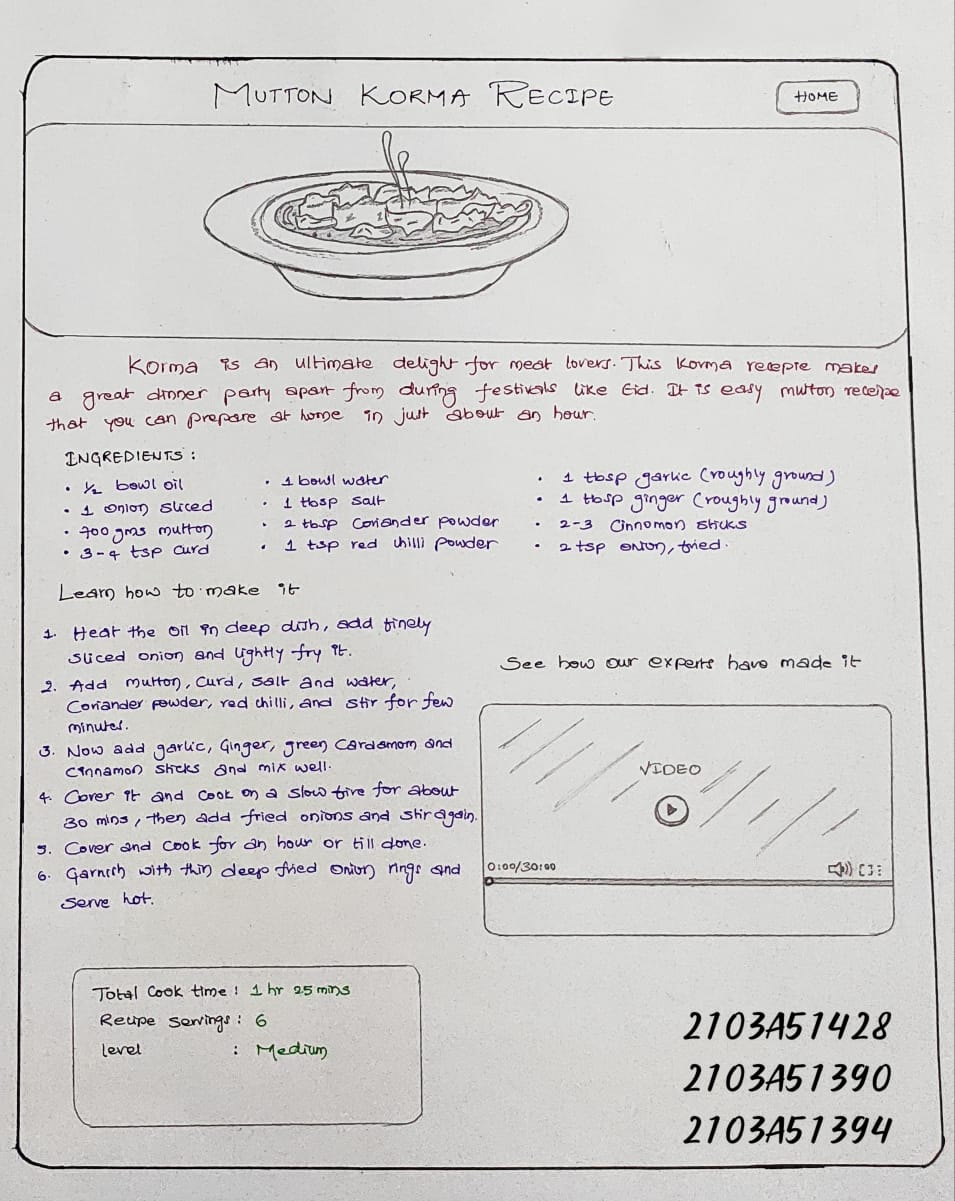 MUTTON KORMA RECIPE
HOME
Korma is an ultimate delight for meat lovers. This Korma recepie makes
a great dinner party apart from during festivals like Eid. It is easy mutton receipe
that you can prepare at home in just about an hour.
INGREDIENTS :
• ½ bowl oil
• 1 onion sliced
• 700 gms mutton
• 3-4 tsp curd
• 1 bowl water
• 1 tbsp salt
• 2 tbsp Coriander powder
• 1 tsp red chilli powder
• 1 tbsp garlic (roughly ground)
• 1 tbsp ginger (roughly ground)
• 2-3 Cinnomon sticks
• 2 tsp onion, fried.
Learn how to make it
1. Heat the oil in deep dish, add finely
sliced onion and lightly fry it.
2. Add mutton, curd, salt and water,
Coriander powder, red chilli, and stir for few
minutes.
3. Now add garlic, Ginger, green Cardamom and
Cinnamon sticks and mix well.
4. Cover it and cook on a slow fire for about
30 mins, then add fried onions and stir again.
5. Cover and cook for an hour or till done.
6. Garnish with thin deep fried onion rings and
serve hot.
See how our experts have made it
VIDEO
0:00/30:00
Total Cook time : 1 hr 25 mins
Recipe Servings : 6
level : Medium
2103A51428
2103A51390
2103A51394